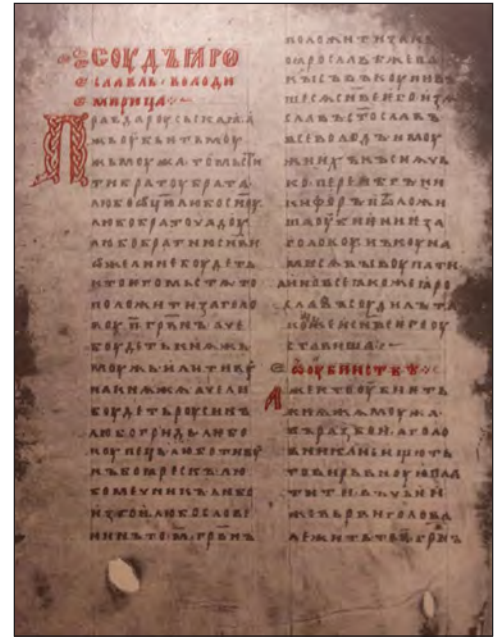 СОУДЪ ꙖРО
СЛАВЛЬ · ВОЛОДИ
МИРИЦА
Правда роусьскаꙗ
жь оубьѥть моу
жь моужа· то мьсти
ти братоу брата·
любо ѿцю любо сн҃оу
любо братоучадоу
любо братню сн҃ви
ѡже ли не боудеть
кто ѥго мьстѧ то
положити за голо
воу п҃ грв҃нъ аче
боудеть кнѧжь
моужь или тивоу
на кнѧжа аче ли
боудеть роусинъ
любо гридь любо
коупець любо тивоу
нъ боꙗрескъ лю
бо мечникъ любо
изгои любо слове
нинъ то· м҃· грв҃нъ
положити за нь
по ꙗрославѣ же па
кы съвъкоупивъ
шесѧ сн҃ве ѥго изѧ
славъ ст҃ославъ
всеволодъ и моу
жи ихъ къснѧчь
ко перенѣгъ ни
кифоръ и ѿложи
ша оубиѥниѥ за
головоу нъ коуна
ми сѧ выкоупати
а ино все ꙗкоже ꙗро
славъ соудилъ та
коже и сн҃ве ѥго оу
ставиша
ѡ оубииствѣ
Аже кто оубиѥть
кнѧжа моужа·
въ разбои· а голо
вника не ищють
то вирьвноую пла
тити· въ чьѥи
же вьрви голова
лежить то п҃ грв҃нъ